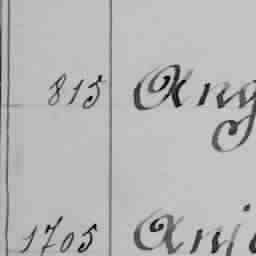 815 Ang
1705 Anj